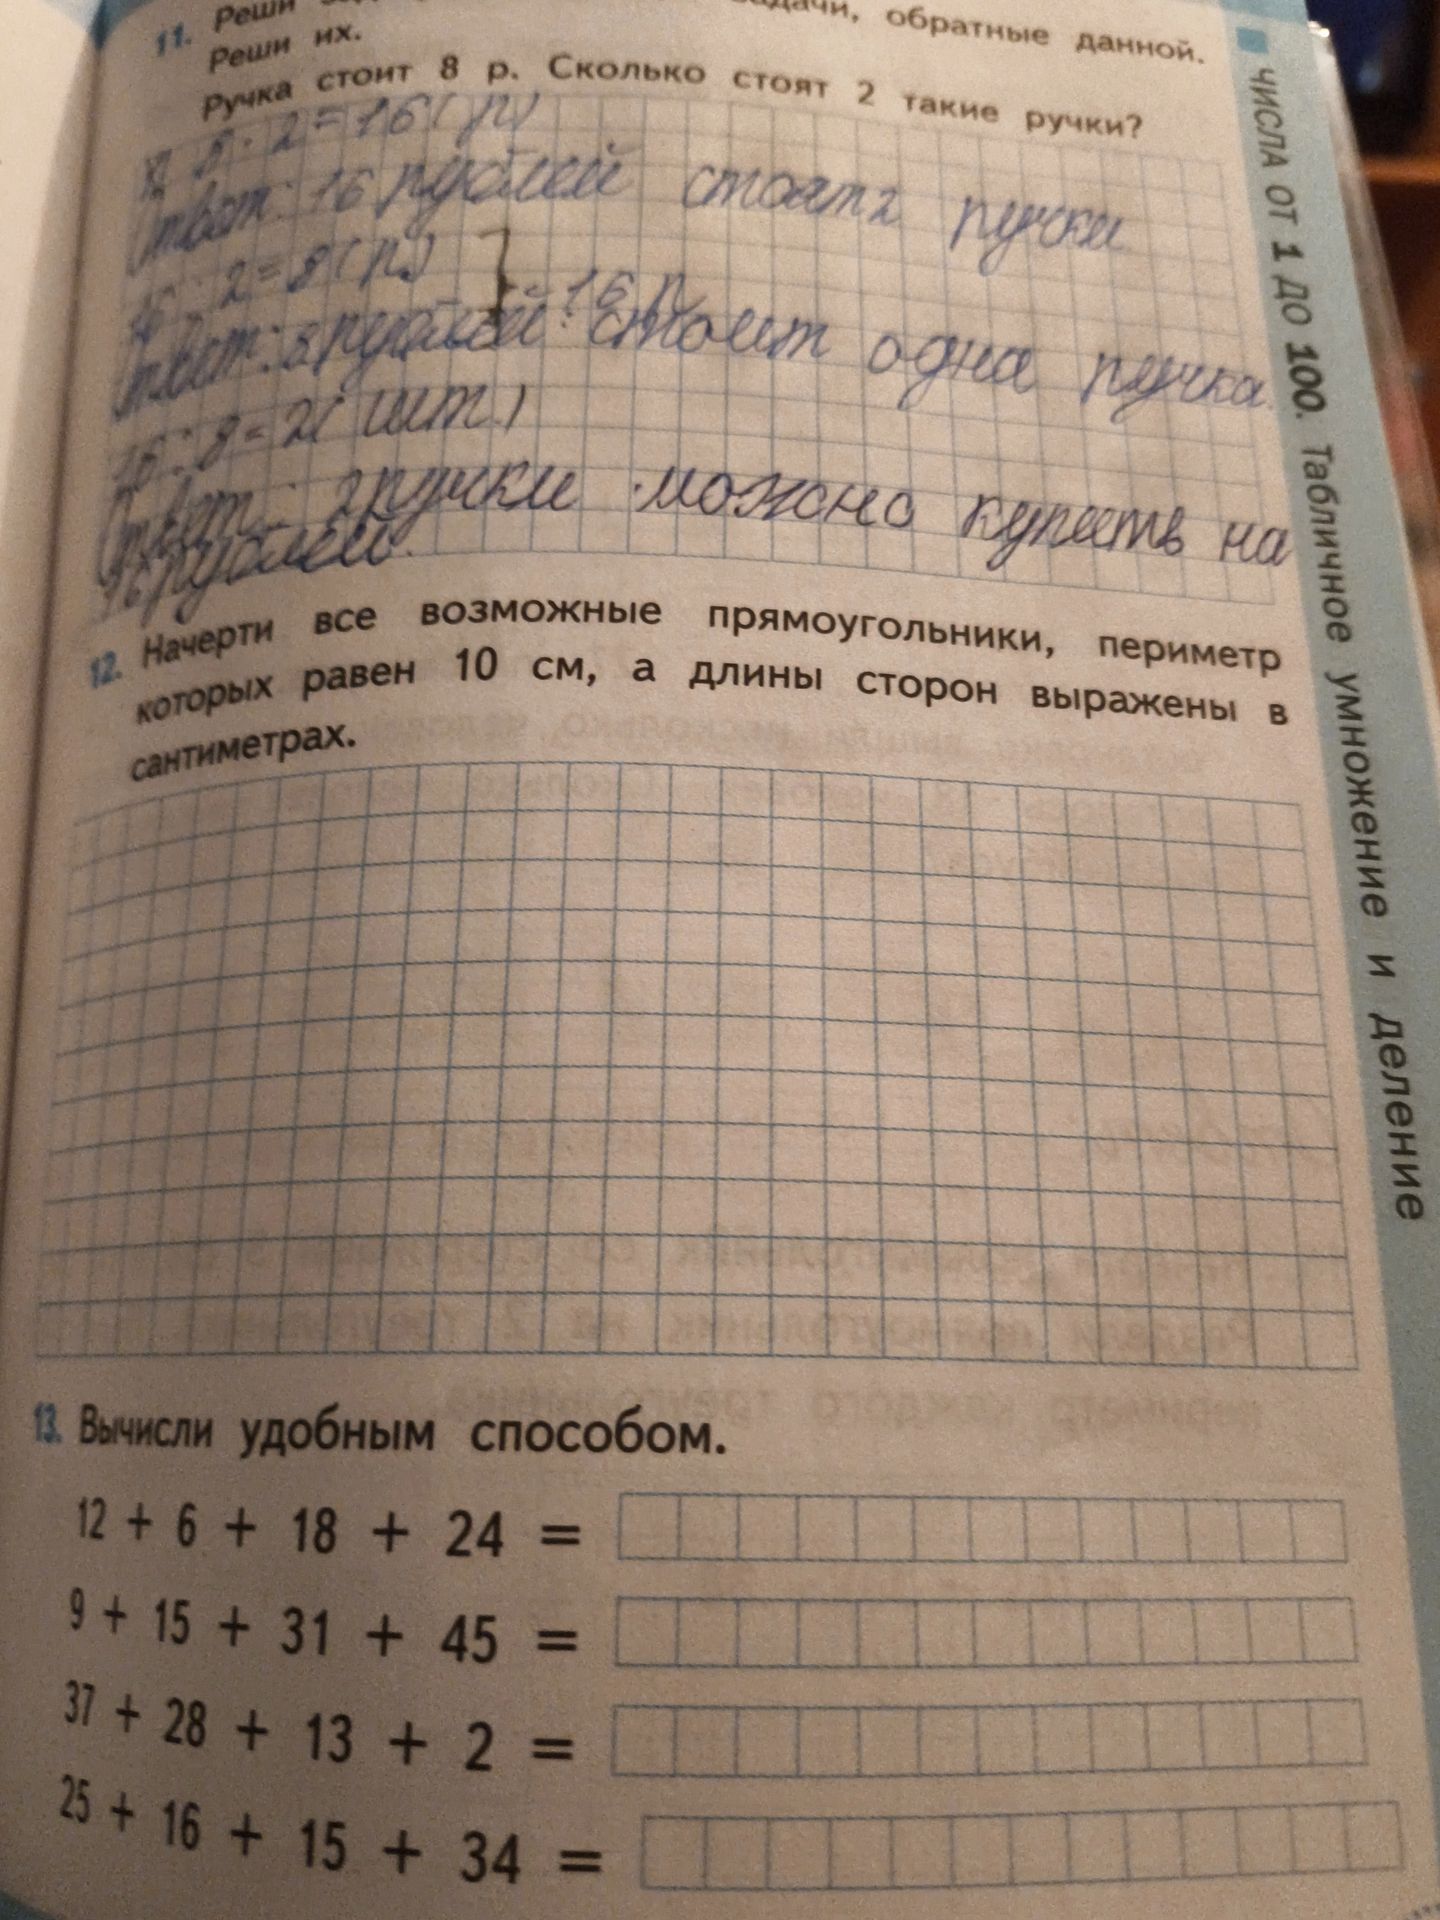 11. Реши задачи, обратные данной.
Реши их.
Ручка стоит 8 р. Сколько стоят 2 такие ручки?
8 · 2 = 16 (р.)
Ответ: 16 рублей стоят 2 ручки
16 : 2 = 8 (р.)
: 16 р.
Ответ: 8 рублей стоит одна ручка.
16 : 8 = 2 (шт.)
Ответ: 2 ручки можно купить на
16 рублей.
12. Начерти все возможные прямоугольники, периметр
которых равен 10 см, а длины сторон выражены в
сантиметрах.
13. Вычисли удобным способом.
12 + 6 + 18 + 24 =
9 + 15 + 31 + 45 =
37 + 28 + 13 + 2 =
25 + 16 + 15 + 34 =
ЧИСЛА ОТ 1 ДО 100. Табличное умножение и деление